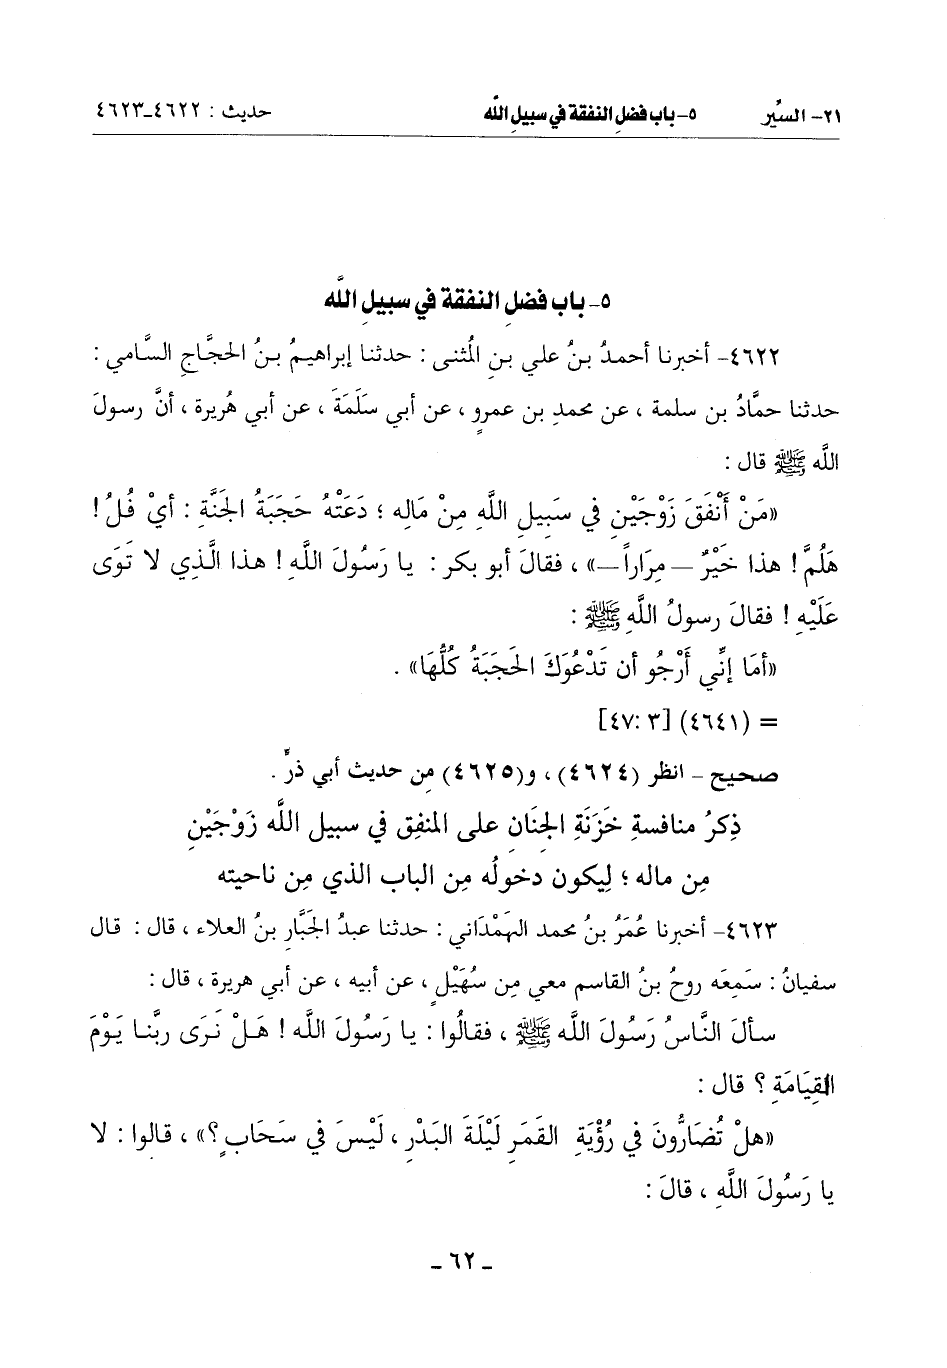 ٢١- السِّير ٥- باب فضلِ النفقة في سبيلِ اللَّه حديث : ٤٦٢٢-٤٦٢٣
٥- باب فضلِ النفقة في سبيلِ اللَّه
٤٦٢٢- أخبرنا أحمدُ بنُ علي بنِ المُثنى : حدثنا إبراهيمُ بنُ الحجَّاجِ السَّامي :
حدثنا حمَّادُ بن سلمة ، عن محمدِ بن عمرٍو ، عن أبي سَلَمَةَ ، عن أبي هُريرة ، أنَّ رسولَ
اللَّه ﷺ قال :
«مَنْ أَنْفَقَ زَوْجَيْنِ في سَبِيلِ اللَّهِ مِنْ مَالِه ؛ دَعَتْهُ حَجَبَةُ الجَنَّةِ : أيْ فُلُ !
هَلُمَّ ! هذا خَيْرٌ – مِرَاراً –» ، فقالَ أبو بكر : يا رَسُولَ اللَّهِ ! هذا الَّذِي لا تَوَى
عَلَيْهِ ! فقالَ رسولُ اللَّهِ ﷺ :
«أمَا إنِّي أَرْجُو أن تَدْعُوَكَ الحَجَبَةُ كُلُّهَا» .
= (٤٦٤١) [٣ :٤٧]
صحيح - انظر (٤٦٢٤) ، و(٤٦٢٥) مِن حديث أبي ذرٍّ .
ذِكرُ منافسةِ خَزَنَةِ الجِنَان على المنفِق في سبيل اللَّه زَوْجَيْنِ
مِن ماله ؛ لِيكون دخولُه مِن الباب الذي مِن ناحيته
٤٦٢٣- أخبرنا عُمَرُ بنُ محمد الهَمْدَاني : حدثنا عبدُ الجَبَّارِ بنُ العلاء ، قال : قال
سفيانُ : سَمِعَه روحُ بنُ القاسم معي مِن سُهَيْلٍ ، عن أبيه ، عن أبي هريرة ، قال :
سألَ النَّاسُ رَسُولَ اللَّه ﷺ ، فقالُوا : يا رَسُولَ اللَّه ! هَلْ نَرَى ربَّنا يَوْمَ
القِيَامَةِ ؟ قال :
«هلْ تُضَارُّونَ في رُؤْيَةِ القَمَرِ لَيْلَةَ البَدْرِ ، لَيْسَ في سَحَابٍ ؟» ، قالوا : لا
يا رَسُولَ اللَّهِ ، قالَ :
- ٦٢ -